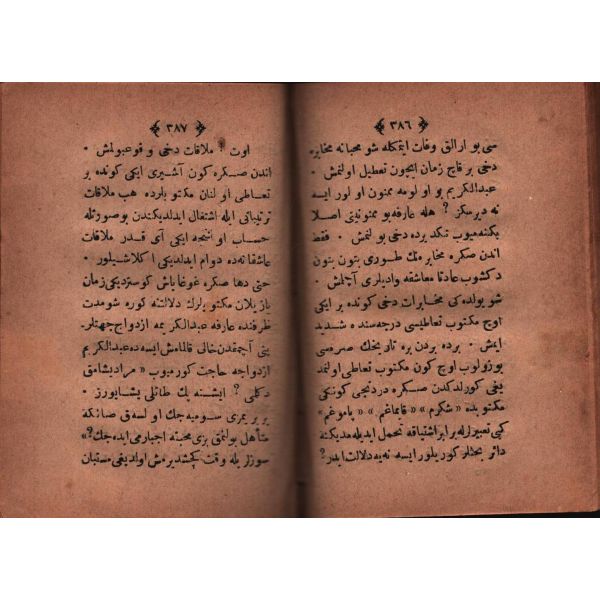 ٣٨٦
سی بو ارالق وفات ایتمكله شو محبانه مخابره
دخی بر قاچ زمان ایچون تعطیل اولنمش
عبدالكریم بو اولومه ممنون اولور ایسه
نه دیرسكز ؟ هله عارفه بو ممنونیتی اصلا
یكنه میوب تنكد برده دخی بولنمش ٠ فقط
اندن صكره مخابره نك طوری بتون بتون
دكشوب عادتا معاشقه وادیلری آچلمش
شو یولده كی مخابرات دخی كونده بر ایكی
اوچ مكتوب تعاطیسی درجه سنده شدید
ایمش ٠ برده بردن بره تاریخك صره سی
بوزولوب اوچ كون مكتوب تعاطی اولنمد
یغی كورلدكدن صكره دردنجی كونكی
مكتوبده « شكرم » « قایماغم » « پاموغم »
كبی تعبیرلرله برابر اشتیاقه تحمل ایدیله مدیكنه
دائر بحثلر كوریلور ایسه نه یه دلالت ایدر؟
٣٨٧
اوت ! ملاقات دخی وقوعبولمش ٠
اندن صكره كون آشیری ایكی كونده بر
تعاطی اولنان مكتوبلرده هب ملاقات
ترتیباتی ایله اشتغال ایدلدیكندن بوصورتله
حساب اولنجه ایكی آی قدر ملاقات
عاشقانه ده دوام ایدلدیكی اكلاشیلور ٠
حتی دها صكره غوغا باش كوستردیكی زمان
یازیلان مكتوبلرك دلالتنه كوره شو مدت
ظرفنده عارفه عبدالكریمه ازدواج جهتلر
ینی آچمقدن خالی قالمامش ایسه ده عبدالكریم
ازدواجه حاجت كورمیوب « مراد یشامق
دكلمی ؟ ایشته بك طاتلی یشایورز ٠
بر بریمزی سومیه جك اولسه ق صانكه
متأهل بولنمق بزی محبته اجبارمی ایده جك؟»
سوزلریله وقت كچشدیرمش اولدیغی مستبان